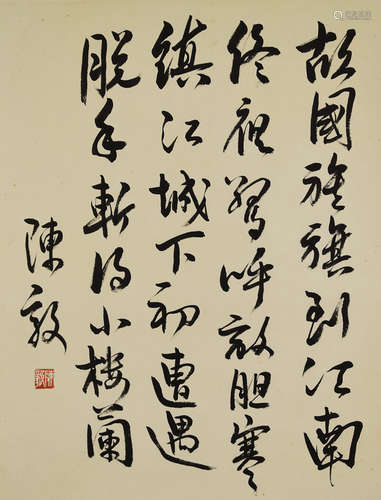 故國旌旗到江南
终夜驚呼敌胆寒
鎮江城下初遭遇
脱手斬得小楼蘭
陳毅